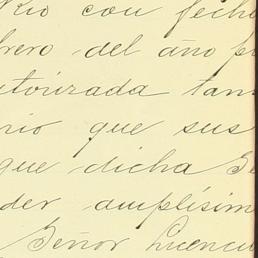 Rio con fecha
brero del año p
utorizada tam
rio que sus
que dicha Se
der amplísim
Señor Licenci